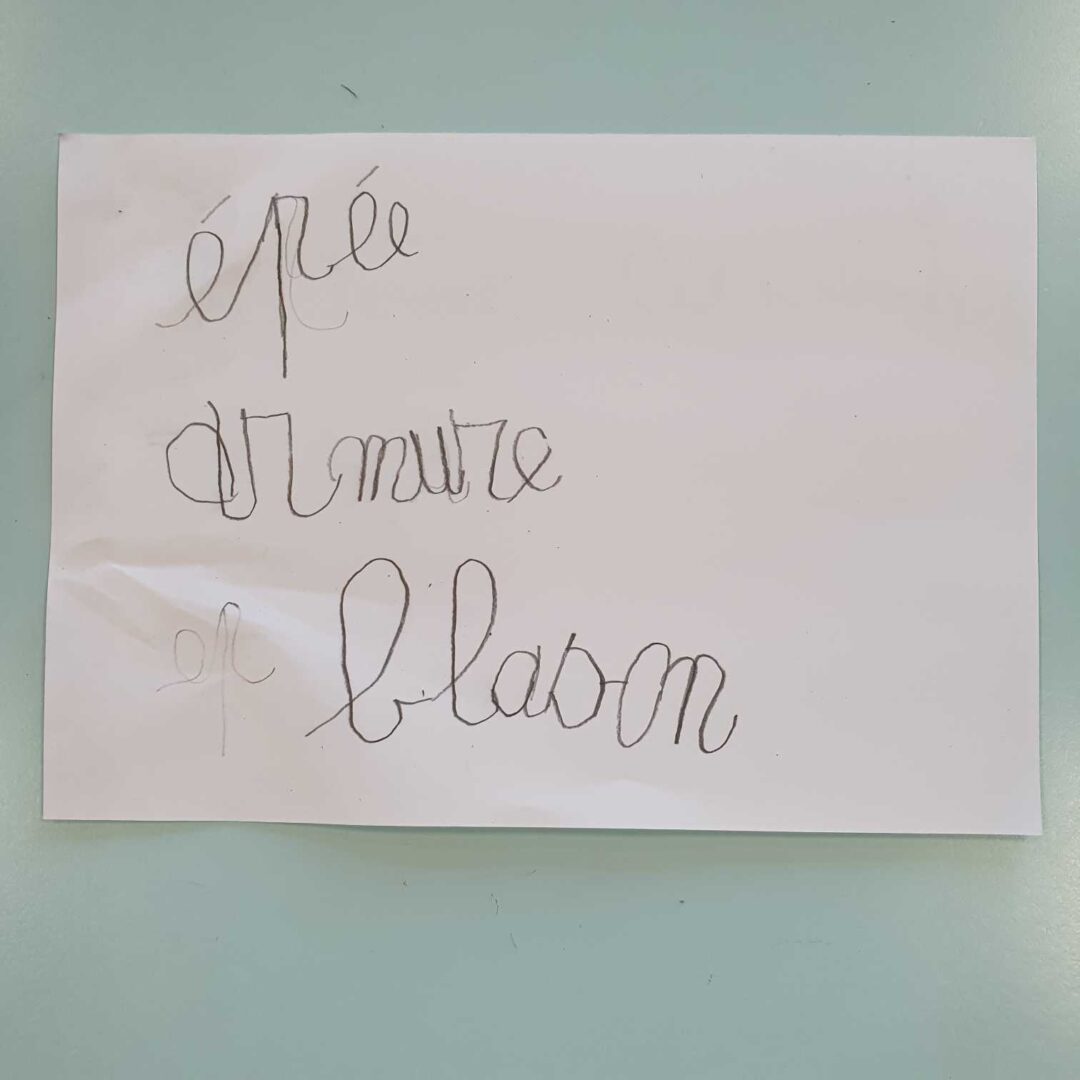 épée
armure
blason